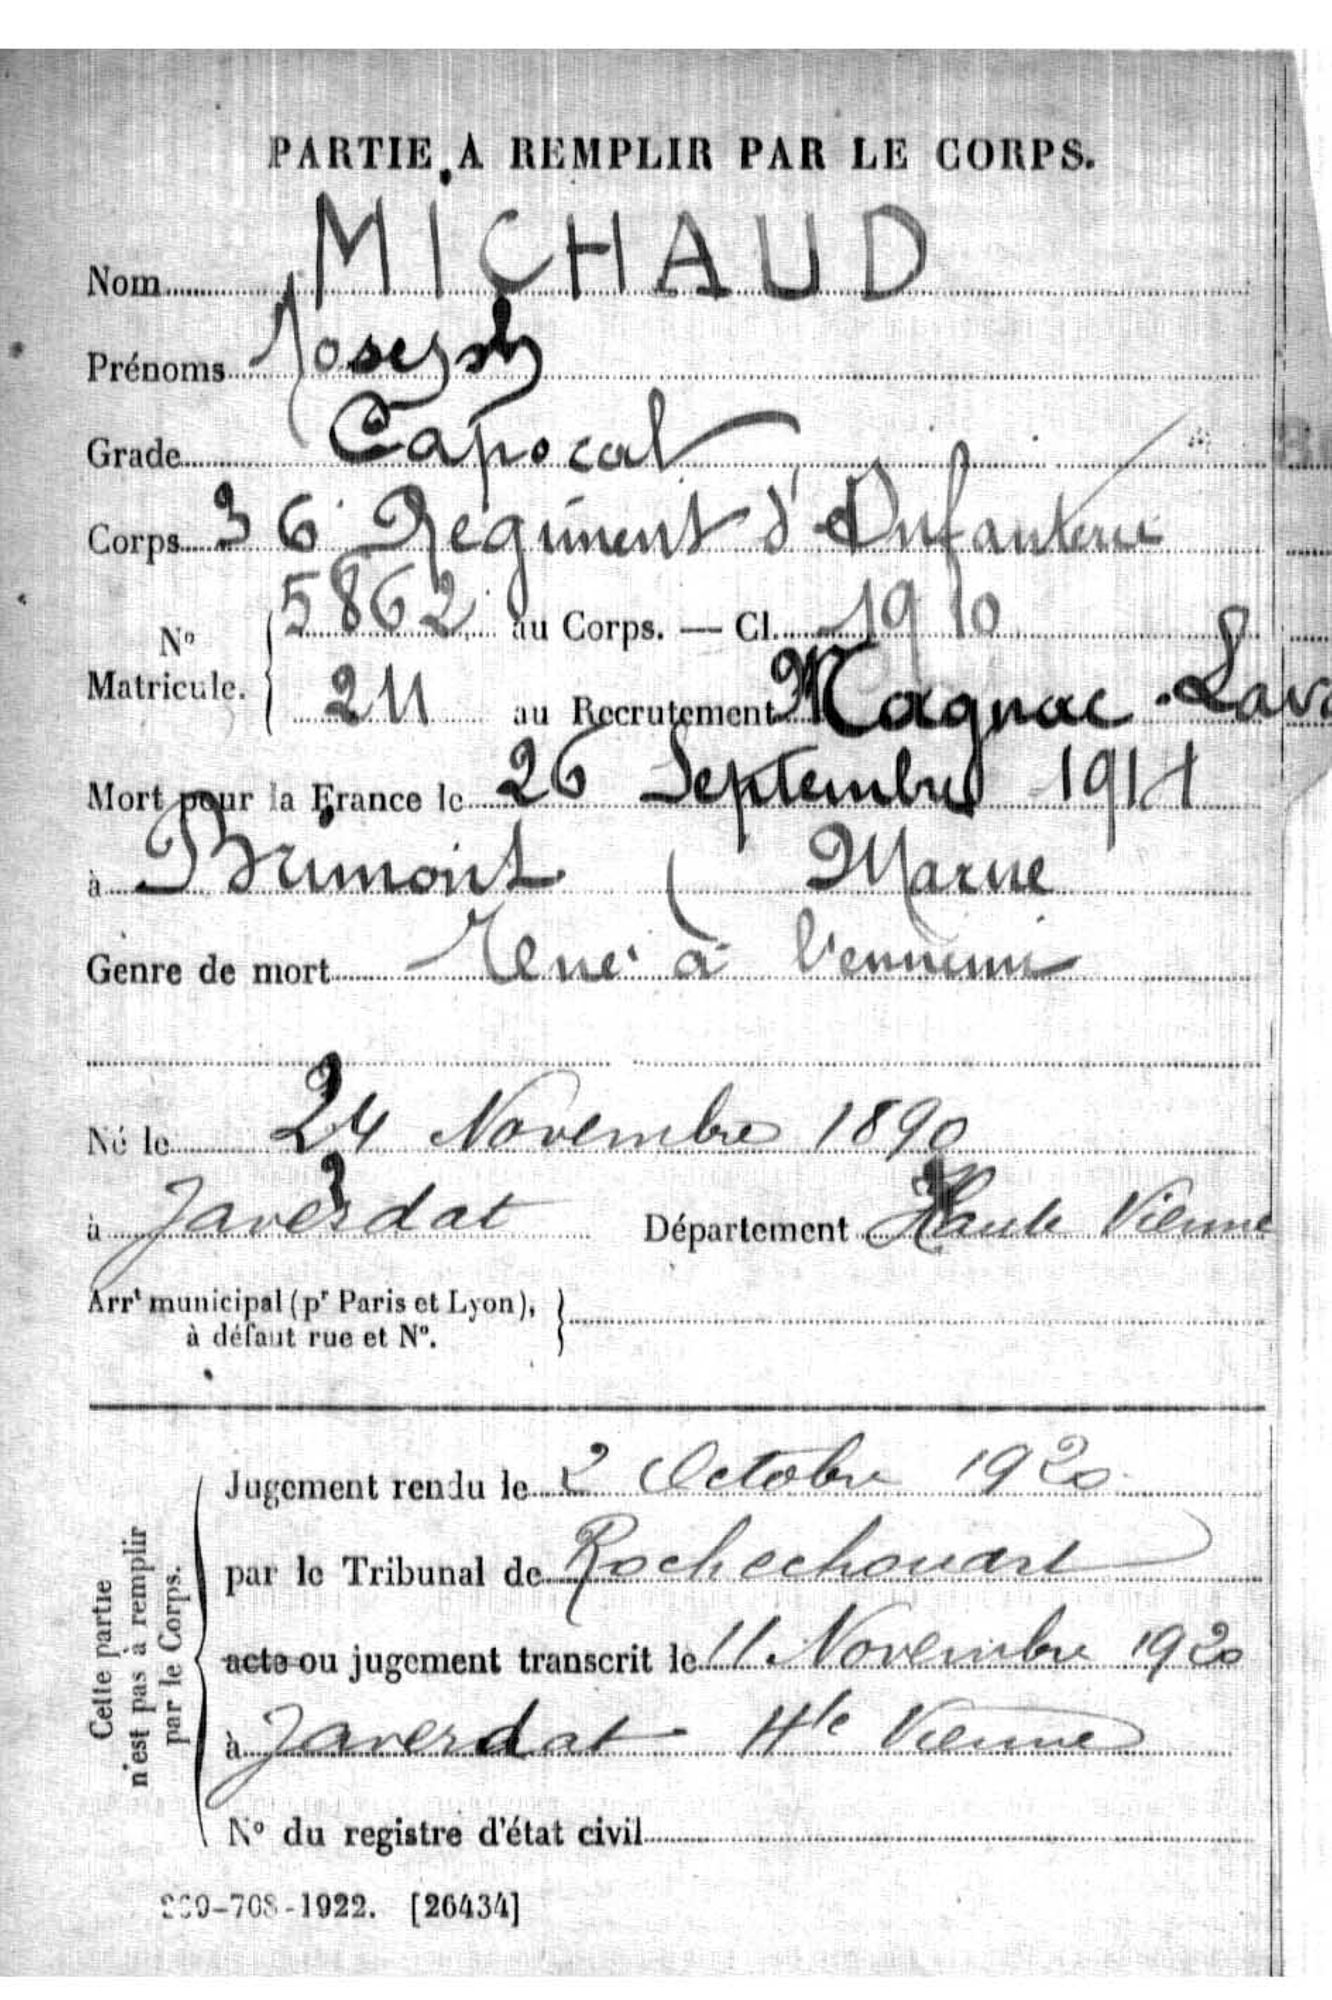 PARTIE A REMPLIR PAR LE CORPS.
Nom MICHAUD
Prénoms Joseph
Grade Caporal
Corps 36 Régiment d'Infanterie
N° Matricule. 5862 au Corps. — Cl. 1910
211 au Recrutement Magnac-Lava
Mort pour la France le 26 Septembre 1914
à Brimont ( Marne
Genre de mort Tué à l'ennemi
Né le 24 Novembre 1890
à Javerdat Département Haute Vienne
Arrt municipal (pr Paris et Lyon),
à défaut rue et N°.
Cette partie
n'est pas à remplir
par le Corps.
Jugement rendu le 2 Octobre 1920
par le Tribunal de Rochechouart
acte ou jugement transcrit le 11 Novembre 1920
à Javerdat Hte Vienne
N° du registre d'état civil
-708-1922. [26434]